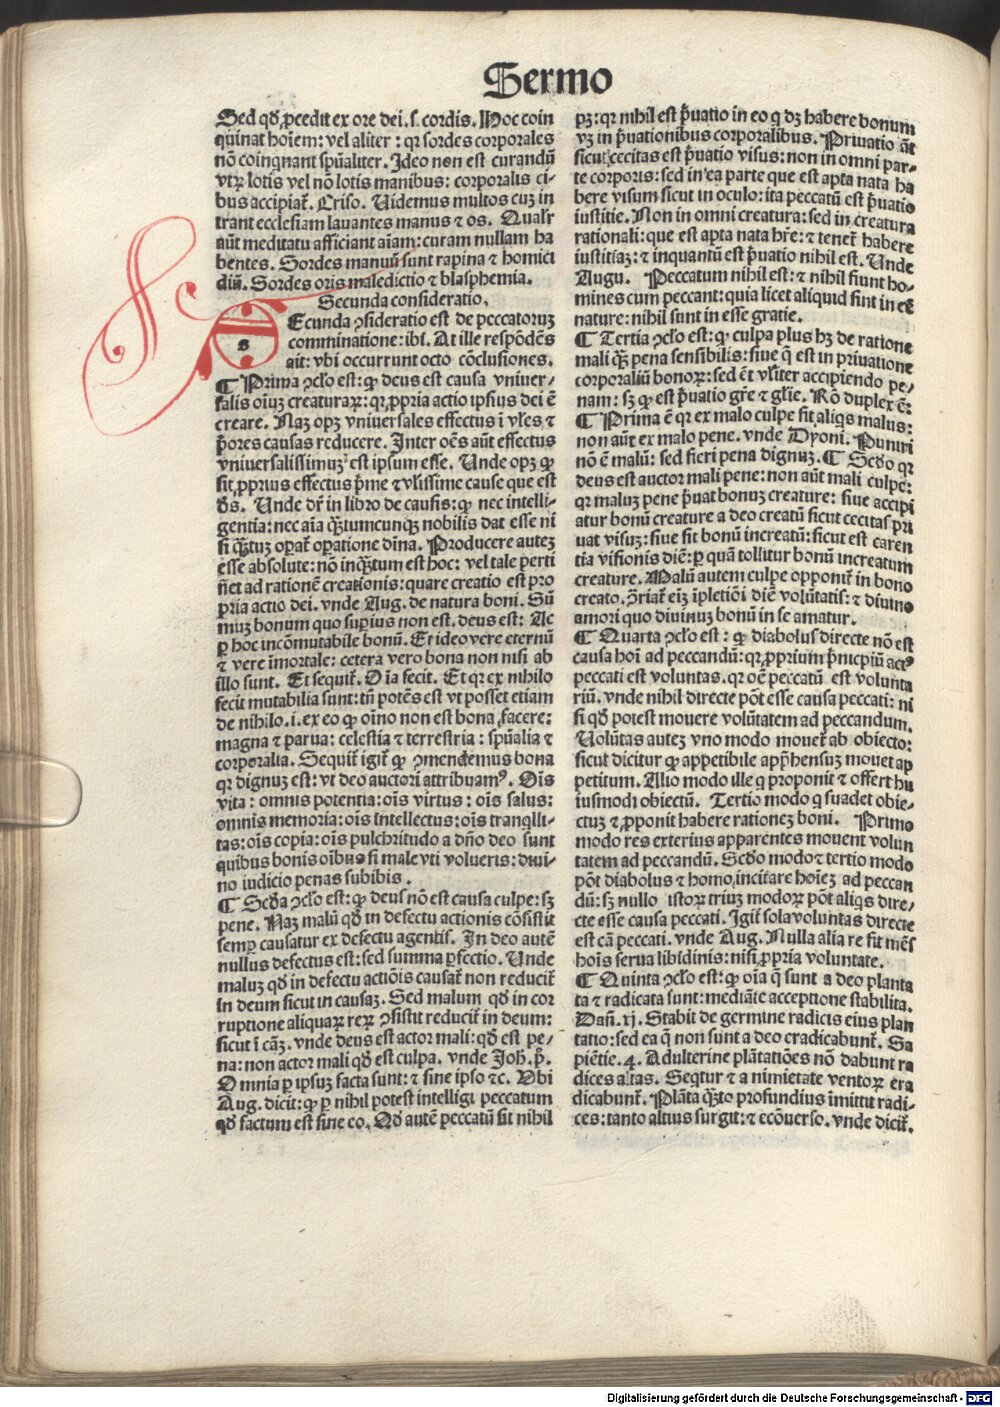 Sermo
Sed qđ ꝓcedit ex ore dei .ſ. cordis. Hoc coin
quinat hoīem: vel aliter: qꝛ sordes corporales
nō coinqnant spūaliter. Ideo non est curandū
vtꝝ lotis vel nō lotis manibus: corporalis ci-
bus accipiat̄. Criso. Uidemus multos cuȝ in
trant ecclesiam lauantes manus & os. Qualr̄
aūt meditatu afficiant aīam: curam nullam ha
bentes. Sordes manuū sunt rapina & homici
diū. Sordes oris maledictio & blasphemia.
Secunda consideratio.
s Ecunda ꝯsideratio est de peccatoruȝ
comminatione: ibi. At ille respōdēs
ait: vbi occurrunt octo cōclusiones.
¶ Prima ꝯclo est: ꝙ deus est causa vniuer-
salis oīuȝ creaturaꝝ: qꝛ ꝓpria actio ipsius dei ē
creare. Naȝ opȝ vniuersales effectus ī vles &
p̄ores causas reducere. Inter oēs aūt effectus
vniuersalissimuȝ est ipsum esse. Unde opȝ ꝙ
sit ꝓprius effectus p̄me & vlissime cause que est
d̄s. Unde dr̄ in libro de causis: ꝙ nec intelli-
gentia: nec aīa quātumcunqȝ nobilis dat esse ni
si quātuȝ opat̄ opatione diīna. Producere auteȝ
esse absolute: nō inquātum est hoc: vel tale perti
net ad rationē creationis: quare creatio est pro
pria actio dei. vnde Aug. de natura boni. Sū
muȝ bonum quo supius non est. deus est: Ac
ꝑ hoc incōmutabile bonū. Et ideo vere eternū
& vere īmortale: cetera vero bona non nisi ab
illo sunt. Et sequit̄. Oīa fecit. Et qꝛ ex nihilo
fecit mutabilia sunt: tn̄ potēs est vt posset etiam
de nihilo .i. ex eo ꝙ oīno non est bona facere:
magna & parua: celestia & terrestria: spūalia &
corporalia. Sequit̄ igit̄ ꝙ ꝯmendemus bona
qꝛ dignuȝ est: vt deo auctori attribuamꝰ. Oīs
vita: omnis potentia: oīs virtus: oīs salus:
omnis memoria: oīs intellectus: oīs tranqlli-
tas: oīs copia: oīs pulchritudo a dño deo sunt
quibus bonis oībus si male vti volueris: diui-
no iudicio penas subibis.
¶ Scd̄a ꝯclo est: ꝙ deus nō est causa culpe: sȝ
pene. Naȝ malū qđ in defectu actionis cōsistit
semꝑ causatur ex defectu agentis. In deo autē
nullus defectus est: sed summa ꝑfectio. Unde
maluȝ qđ in defectu actiōis causat̄ non reducit̄
in deum sicut in causaȝ. Sed malum qđ in cor
ruptione aliquaꝝ reꝝ ꝯsistit reducit̄ in deum:
sicut ī cāȝ. vnde deus est actor mali: qđ est pe-
na: non actor mali qđ est culpa. vnde Joh. p̄.
Omnia ꝑ ipsuȝ facta sunt: & sine ipso &c. Vbi
Aug. dicit: ꝙ ꝑ nihil potest intelligi peccatum
qđ factum est sine eo. Qđ autē peccatū sit nihil
pȝ: qꝛ nihil est p̄uatio in eo q dȝ habere bonum
vȝ in p̄uationibus corporalibus. Priuatio aūt
sicut cecitas est p̄uatio visus: non in omni par-
te corporis: sed in ea parte que est apta nata ha
bere visum sicut in oculo: ita peccatū est p̄uatio
iustitie. Non in omni creatura: sed in creatura
rationali: que est apta nata hr̄e: & tenet̄ habere
iustitiaȝ: & inquantū est p̄uatio nihil est. Unde
Augu. Peccatum nihil est: & nihil fiunt ho-
mines cum peccant: quia licet aliquid sint in eē
nature: nihil sunt in esse gratie.
¶ Tertia ꝯclo est: ꝙ culpa plus hȝ de ratione
mali qȝ pena sensibilis: siue q̄ est in priuatione
corporaliū bonoꝝ: sed ēt vl'iter accipiendo pe-
nam: sȝ ꝙ est p̄uatio gr̄e & gl'ie. Rō duplex ē:
¶ Prima ē qꝛ ex malo culpe fit aliqs malus:
non aūt ex malo pene. vnde Dyoni. Puniri
nō ē malū: sed fieri pena dignuȝ. ¶ Scd̄o qꝛ
deus est auctor mali pene: non aūt mali culpe:
qꝛ maluȝ pene p̄uat bonuȝ creature: siue accipi
atur bonū creature a deo creatū sicut cecitas pri
uat visuȝ: siue sit bonū increatū: sicut est caren
tia visionis diīē: ꝑ quā tollitur bonū increatum
creature. Malū autem culpe opponit̄ in bono
creato. ꝯriat̄ eiȝ īpletiōi diīē volūtatis: & diuino
amori quo diuinuȝ bonū in se amatur.
¶ Quarta ꝯclo est: ꝙ diabolus directe nō est
causa hoī ad peccandū: qꝛ ꝓprium p̄ncipiū actꝰ
peccati est voluntas. qꝛ oē peccatū est volunta
riū. vnde nihil directe pōt esse causa peccati: ni
si qđ potest mouere volūtatem ad peccandum.
Uolūtas auteȝ vno modo mouet̄ ab obiecto:
sicut dicitur ꝙ appetibile app̄hensuȝ mouet ap
petitum. Alio modo ille q proponit & offert hu
iusmodi obiectū. Tertio modo q suadet obie-
ctuȝ & ꝓponit habere rationeȝ boni. Primo
modo res exterius apparentes mouent volun
tatem ad peccandū. Scd̄o modo & tertio modo
pōt diabolus & homo incitare hoīeȝ ad peccan
dū: sȝ nullo istoꝝ triuȝ modoꝝ pōt aliqs dire-
cte esse causa peccati. Igit̄ sola voluntas directe
est cā peccati. vnde Aug. Nulla alia re fit mēs
hoīs serua libidinis: nisi ꝓpria voluntate.
¶ Quinta ꝯclo est: ꝙ oīa q̄ sunt a deo planta
ta & radicata sunt: mediāte acceptione stabilita.
Dañ. xj. Stabit de germine radicis eius plan
tatio: sed ea q̄ non sunt a deo eradicabunt̄. Sa
piētie .4. Adulterine plātatiōes nō dabunt ra
dices altas. Seqtur & a nimietate ventoꝝ era
dicabunt̄. Plāta quāto profundius īmittit radi-
ces: tanto altius surgit: & ecōuerso. vnde dicit̄.
Digitalisierung gefördert durch die Deutsche Forschungsgemeinschaft - DFG